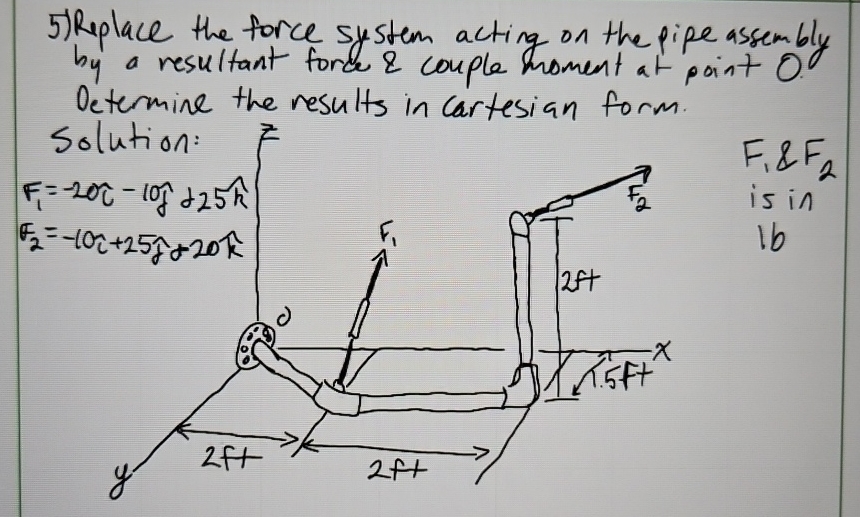 5) Replace the force system acting on the pipe assembly
by a resultant force & couple moment at point O.
Determine the results in cartesian form.
Solution:
F₁ = -20î - 10ĵ + 25k̂
F₂ = -10î + 25ĵ + 20k̂
F₁ & F₂
is in
lb
z
F₂
F₁
2ft
O
x
1.5ft
2ft
2ft
y